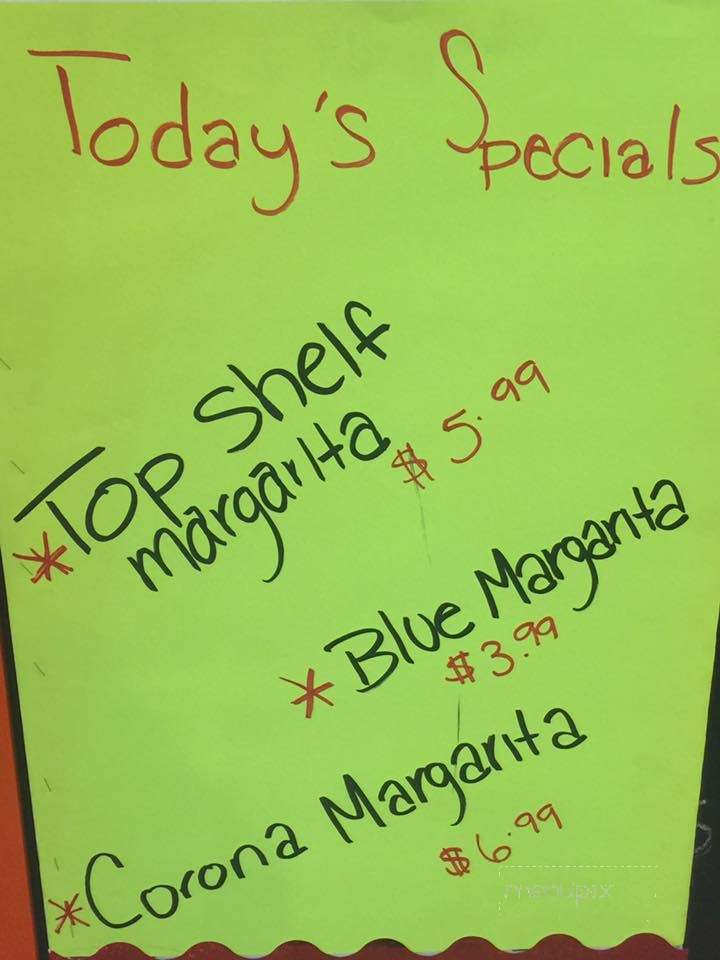 Today's Specials
*Top Shelf
margarita $5.99
*Blue Margarita
$3.99
*Corona Margarita
$6.99
menupix